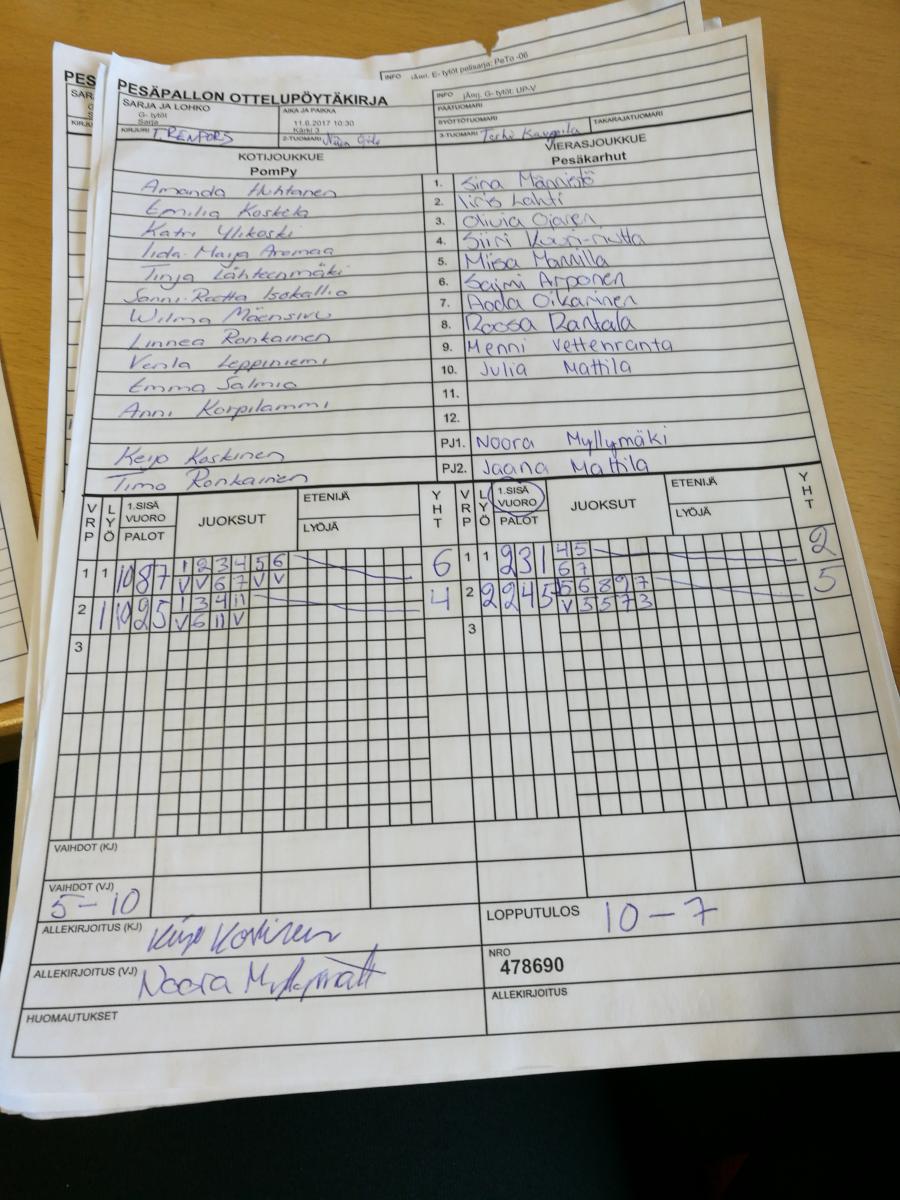 PESÄPALLON OTTELUPÖYTÄKIRJA
PES
INFO jÄmi. E- tytöt pelisarja: PeTo -06
INFO jÄmj. G- tytöt: UP-V
SARJA JA LOHKO
G- tytöt
Sarja
AIKA JA PAIKKA
11.6.2017 10:30
Kärki 3
PÄÄTUOMARI
SYÖTTÖTUOMARI TAKARAJATUOMARI
KIRJURI
2-TUOMARI
3-TUOMARI
KOTIJOUKKUE
PomPy
VIERASJOUKKUE
Pesäkarhut
Amanda Huhtanen 1. Sina Männistö
Emilia Koskela 2. Iiris Lahti
Katri Ylikoski 3. Olivia Ojaren
Iida-Maija Aromaa 4. Siiri
Tinja Lähteenmäki 5. Miisa Mannila
Sanni-Reetta Isokallio 6. Saimi Arponen
Wilma Mäensivu 7. Aada Oikarinen
Linnea Ronkainen 8. Roosa Rantala
Venla Leppiniemi 9. Menni Vettenranta
Emma Salmio 10. Julia Mattila
Anni Korpilammi 11.
12.
Keijo Koskinen PJ1. Noora Myllymäki
Timo Ronkainen PJ2. Jaana Mattila
VRP LYÖ 1.SISÄ VUORO PALOT JUOKSUT ETENIJÄ LYÖJÄ YHT VRP LYÖ 1.SISÄ VUORO PALOT JUOKSUT ETENIJÄ LYÖJÄ YHT
1 1 10 8 7 1 2 3 4 5 6 6 1 1 2 3 1 4 5 2
V V 6 7 V V 6 7
2 1 10 2 5 1 3 4 11 4 2 2 2 4 5 5 6 8 9 7 5
V 6 11 V V 3 5 7 3
3 3
VAIHDOT (KJ)
VAIHDOT (VJ)
5-10
ALLEKIRJOITUS (KJ)
LOPPUTULOS 10-7
ALLEKIRJOITUS (VJ) Noora
NRO
478690
HUOMAUTUKSET
ALLEKIRJOITUS